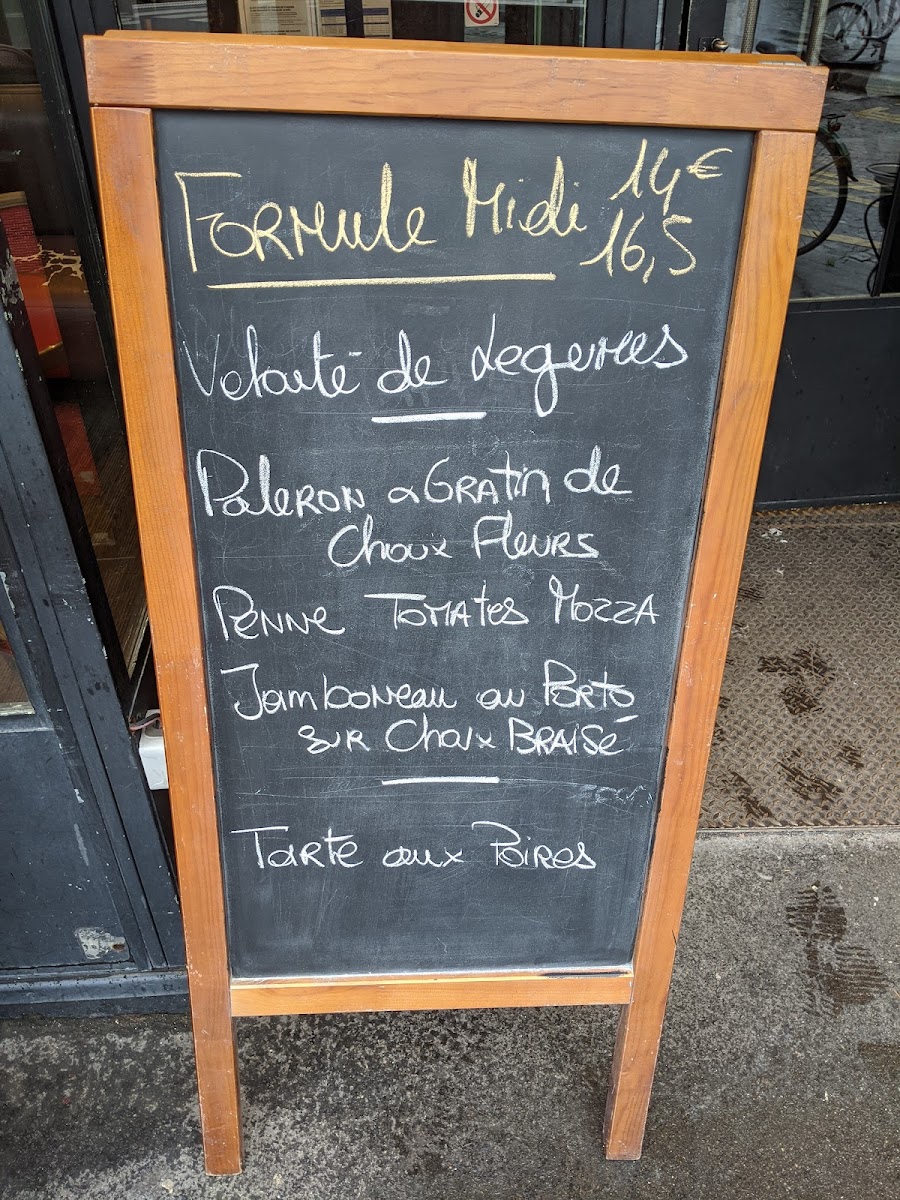 Formule Midi 14€
16,5
Velouté de Legumes
Paleron & Gratin de
Choux Fleurs
Penne Tomates Mozza
Jamboneau au Porto
sur Choux Braisé
Tarte aux Poires